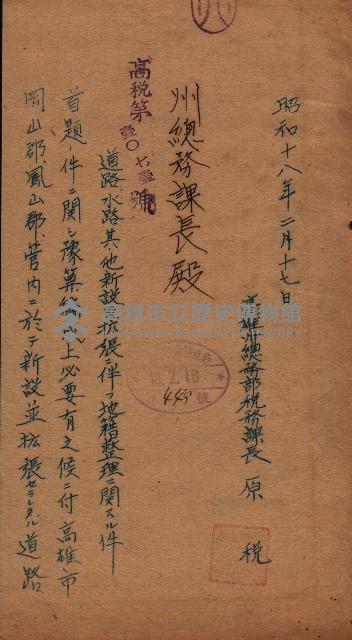 昭和十八年二月十七日
高雄州總務部税務課長 原 税
州總務課長殿
高税第壹〇六壹號
道路水路其他新設拡張ニ伴フ地籍整理ニ関スル件
首題ノ件ニ関シ豫算編成上必要有之候ニ付高雄市
岡山郡、鳳山郡、管内ニ於テ新設並拡張セラレタル道路
18.2.18
449
號
高雄市立歷史博物館